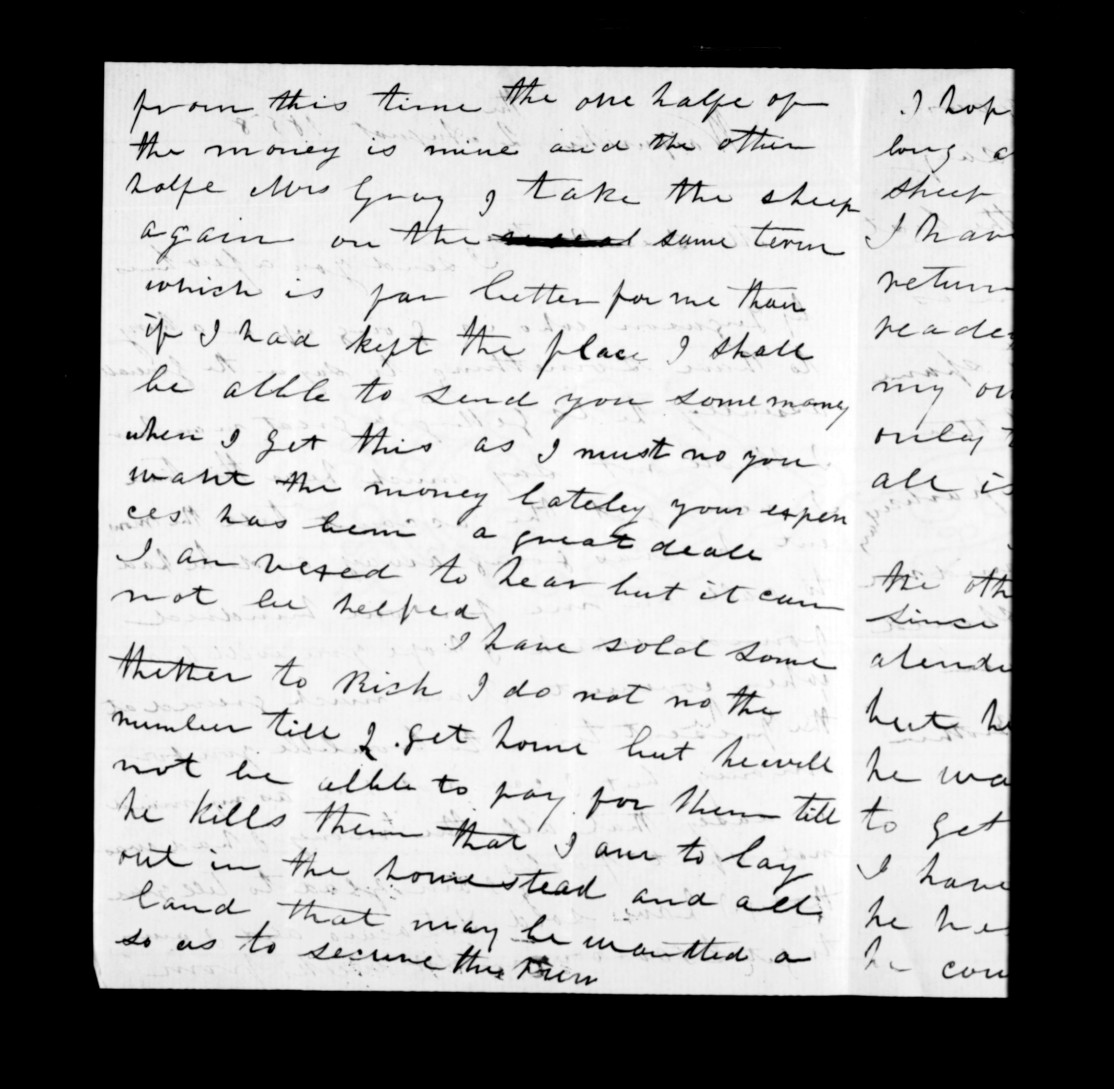 from this time the one halfe of
the money is mine and the other
halfe Mrs Gray I take the sheep
again on the same term
which is far better for me than
if I had kept the place I shall
be allble to send you some money
when I get this as I must no you
want the money lateley your expen
ces has bein a great deale
I am vexed to hear but it can
not be helped
I have sold some
thetter to Rich I do not no the
number till I get home but he will
not be allble to pay for them till
he kills them that I am to lay
out in the homestead and all
land that may be wantted a
so as to secure the Run
I hop
long a
sheep
I hav
return
reade
my ow
onley t
all is
the oth
since
atende
but he
he wa
to get
I have
he he
he cou